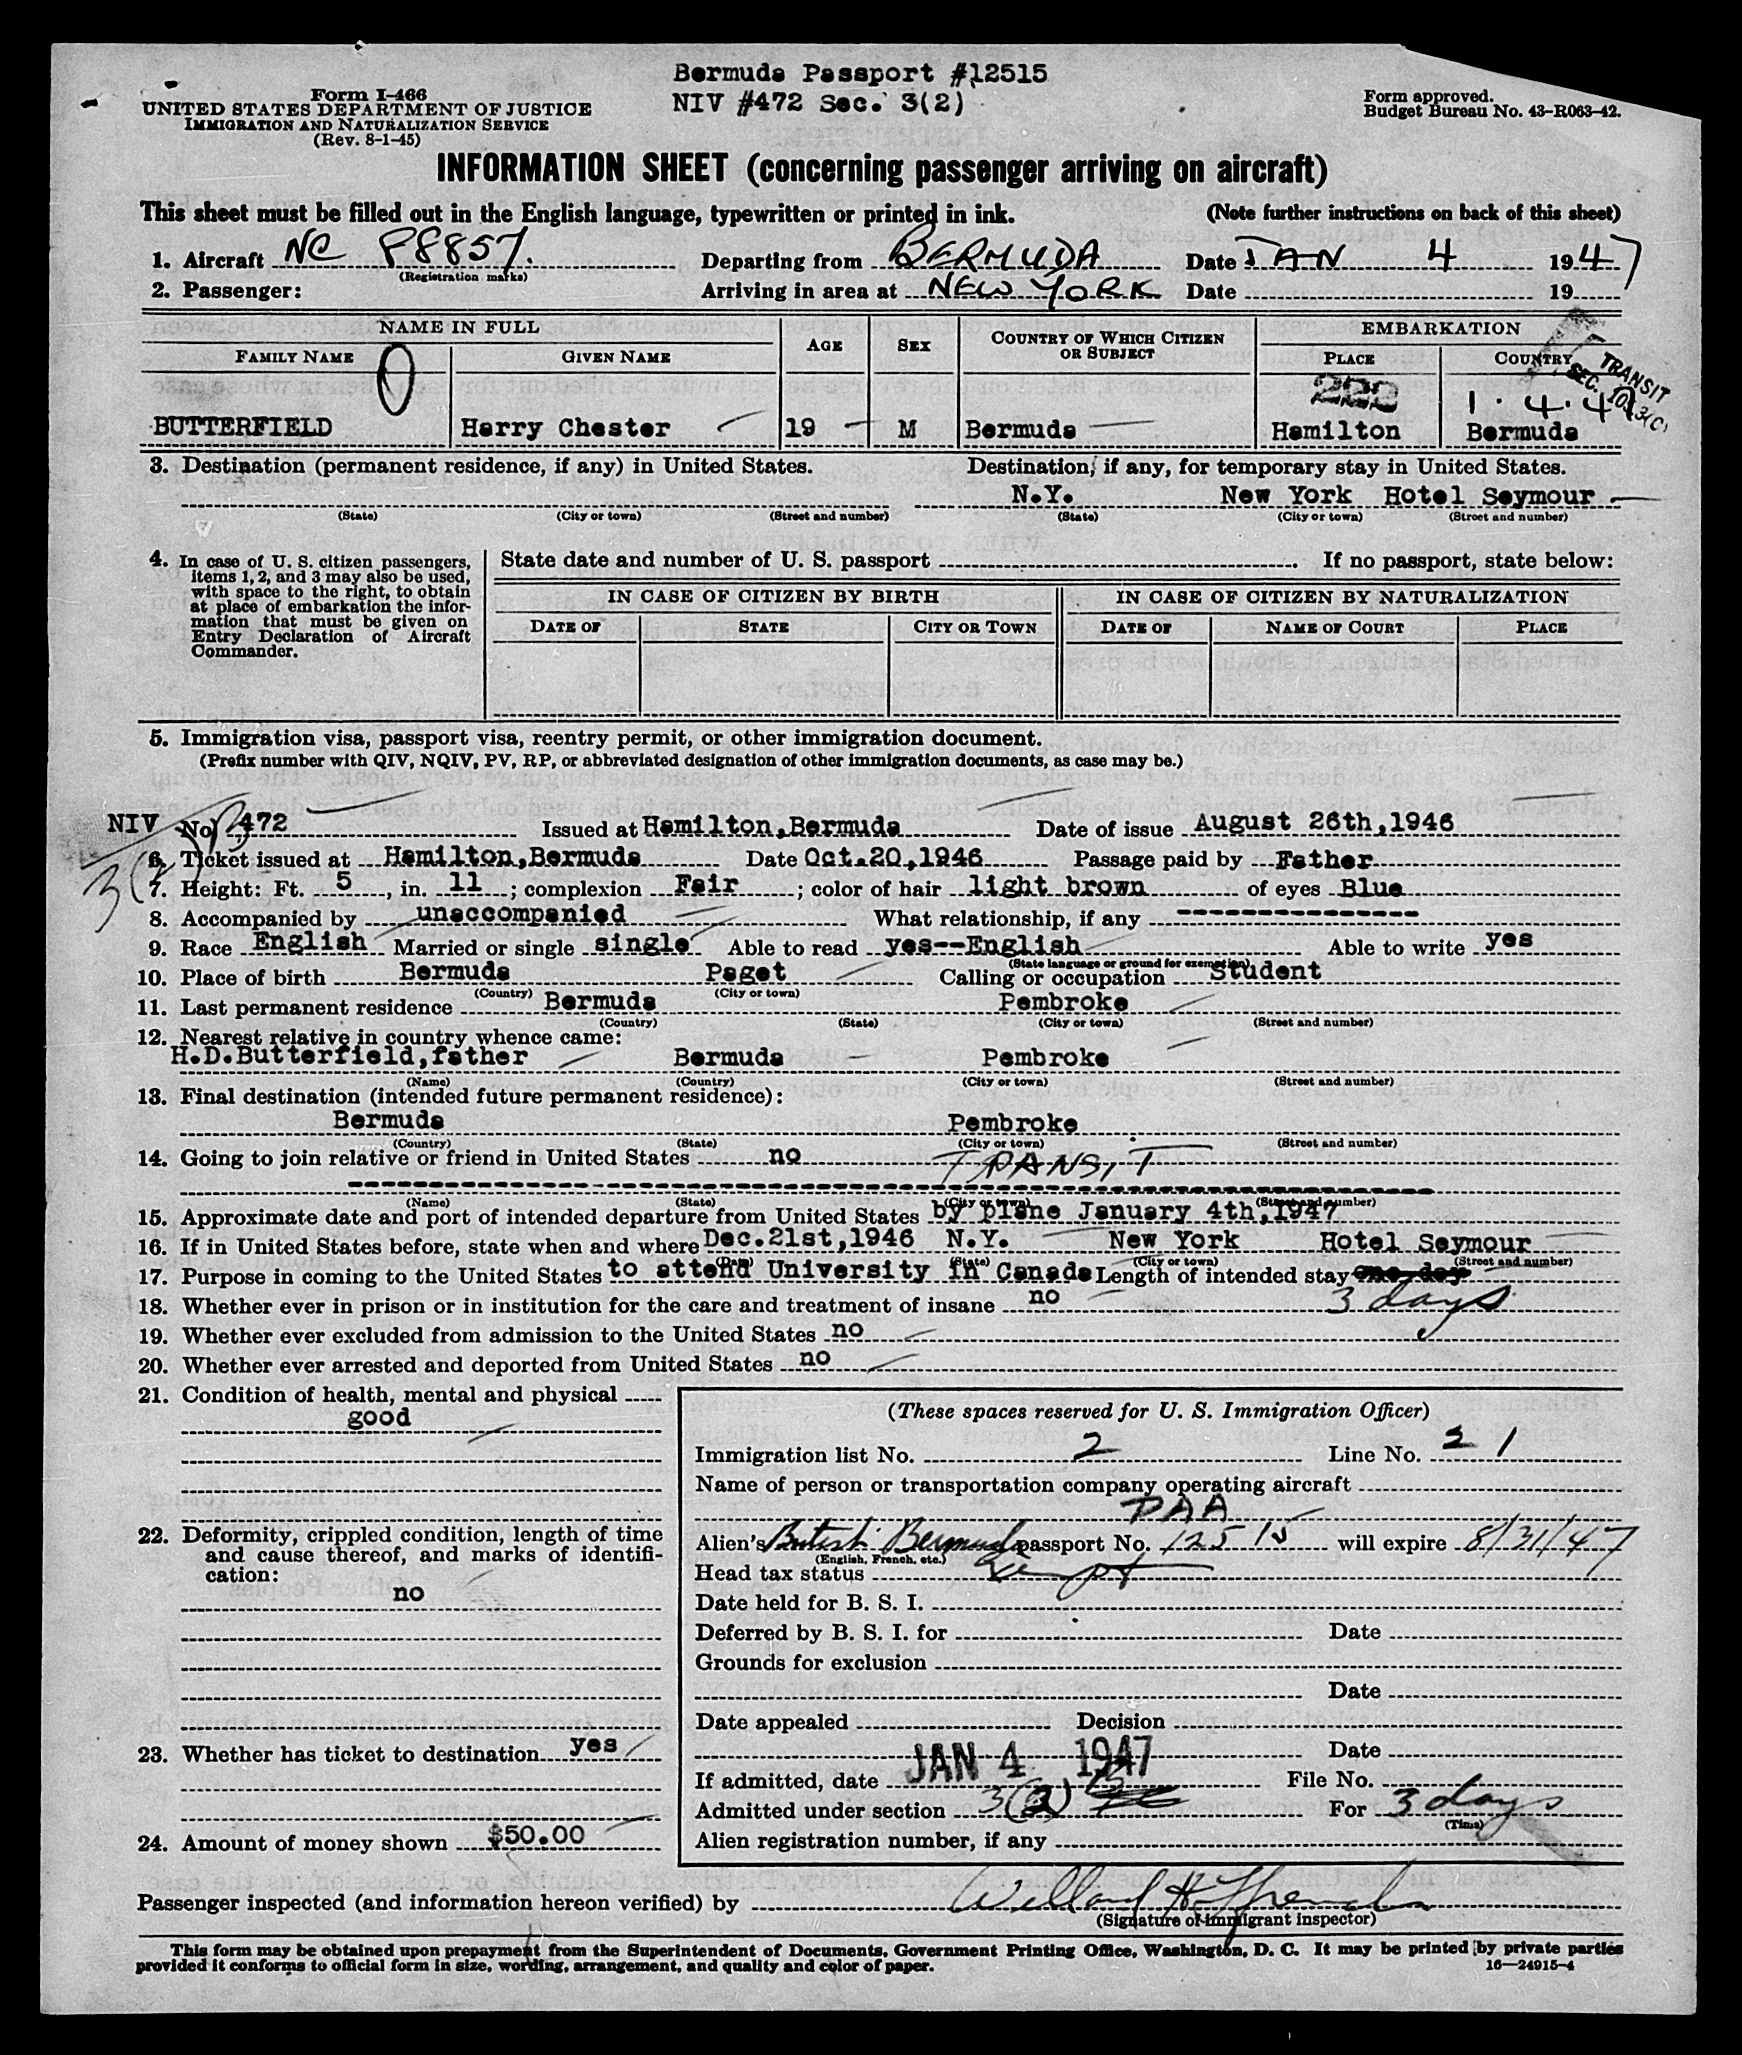 Bermuda Passport #12515
NIV #472 Sec. 3(2)
Form I-466
UNITED STATES DEPARTMENT OF JUSTICE
IMMIGRATION AND NATURALIZATION SERVICE
(Rev. 8-1-45)
Form approved.
Budget Bureau No. 43-R063-42.
INFORMATION SHEET (concerning passenger arriving on aircraft)
This sheet must be filled out in the English language, typewritten or printed in ink. (Note further instructions on back of this sheet)
1. Aircraft NC 88857. Departing from BERMUDA Date JAN 4 1947
(Registration marks)
2. Passenger: Arriving in area at NEW YORK Date 19
NAME IN FULL AGE SEX COUNTRY OF WHICH CITIZEN OR SUBJECT EMBARKATION
FAMILY NAME GIVEN NAME PLACE COUNTRY
TRANSIT
SEC.
1.4.47
BUTTERFIELD Harry Chester 19 M Bermuda Hamilton Bermuda
3. Destination (permanent residence, if any) in United States. Destination, if any, for temporary stay in United States.
N.Y. New York Hotel Seymour
(State) (City or town) (Street and number) (State) (City or town) (Street and number)
4. In case of U. S. citizen passengers, items 1, 2, and 3 may also be used, with space to the right, to obtain at place of embarkation the information that must be given on Entry Declaration of Aircraft Commander.
State date and number of U. S. passport . If no passport, state below:
IN CASE OF CITIZEN BY BIRTH IN CASE OF CITIZEN BY NATURALIZATION
DATE OF STATE CITY OR TOWN DATE OF NAME OF COURT PLACE
5. Immigration visa, passport visa, reentry permit, or other immigration document.
(Prefix number with QIV, NQIV, PV, RP, or abbreviated designation of other immigration documents, as case may be.)
NIV No. 472 Issued at Hamilton, Bermuda Date of issue August 26th, 1946
3(2)
6. Ticket issued at Hamilton, Bermuda Date Oct. 20, 1946 Passage paid by Father
7. Height: Ft. 5, in. 11; complexion Fair; color of hair light brown of eyes Blue
8. Accompanied by unaccompanied What relationship, if any ---------------
9. Race English Married or single single Able to read yes--English Able to write yes
(State language or ground for exemption)
10. Place of birth Bermuda Paget Calling or occupation Student
(Country) (City or town)
11. Last permanent residence Bermuda Pembroke
(Country) (State) (City or town) (Street and number)
12. Nearest relative in country whence came:
H.D. Butterfield, father Bermuda Pembroke
(Name) (Country) (City or town) (Street and number)
13. Final destination (intended future permanent residence):
Bermuda Pembroke
(Country) (State) (City or town) (Street and number)
14. Going to join relative or friend in United States no TRANSIT
(Name) (State) (City or town) (Street and number)
15. Approximate date and port of intended departure from United States by plane January 4th, 1947
16. If in United States before, state when and where Dec. 21st, 1946 N.Y. New York Hotel Seymour
(Date) (State) (City or town) (Street and number)
17. Purpose in coming to the United States to attend University in Canada Length of intended stay one day
3 days
18. Whether ever in prison or in institution for the care and treatment of insane no
19. Whether ever excluded from admission to the United States no
20. Whether ever arrested and deported from United States no
21. Condition of health, mental and physical
good
22. Deformity, crippled condition, length of time and cause thereof, and marks of identification:
no
23. Whether has ticket to destination yes
24. Amount of money shown $50.00
(These spaces reserved for U. S. Immigration Officer)
Immigration list No. 2 Line No. 21
Name of person or transportation company operating aircraft
PAA
Alien's British Bermuda passport No. 12515 will expire 8/31/47
(English, French, etc.)
Head tax status Exempt
Date held for B. S. I.
Deferred by B. S. I. for Date
Grounds for exclusion
Date
Date appealed Decision
Date
If admitted, date JAN 4 1947 File No.
Admitted under section 3(3) For 3 days
(Time)
Alien registration number, if any
Passenger inspected (and information hereon verified) by Willard H.
(Signature of immigrant inspector)
This form may be obtained upon prepayment from the Superintendent of Documents, Government Printing Office, Washington, D. C. It may be printed by private parties
provided it conforms to official form in size, wording, arrangement, and quality and color of paper.
16—24915-4